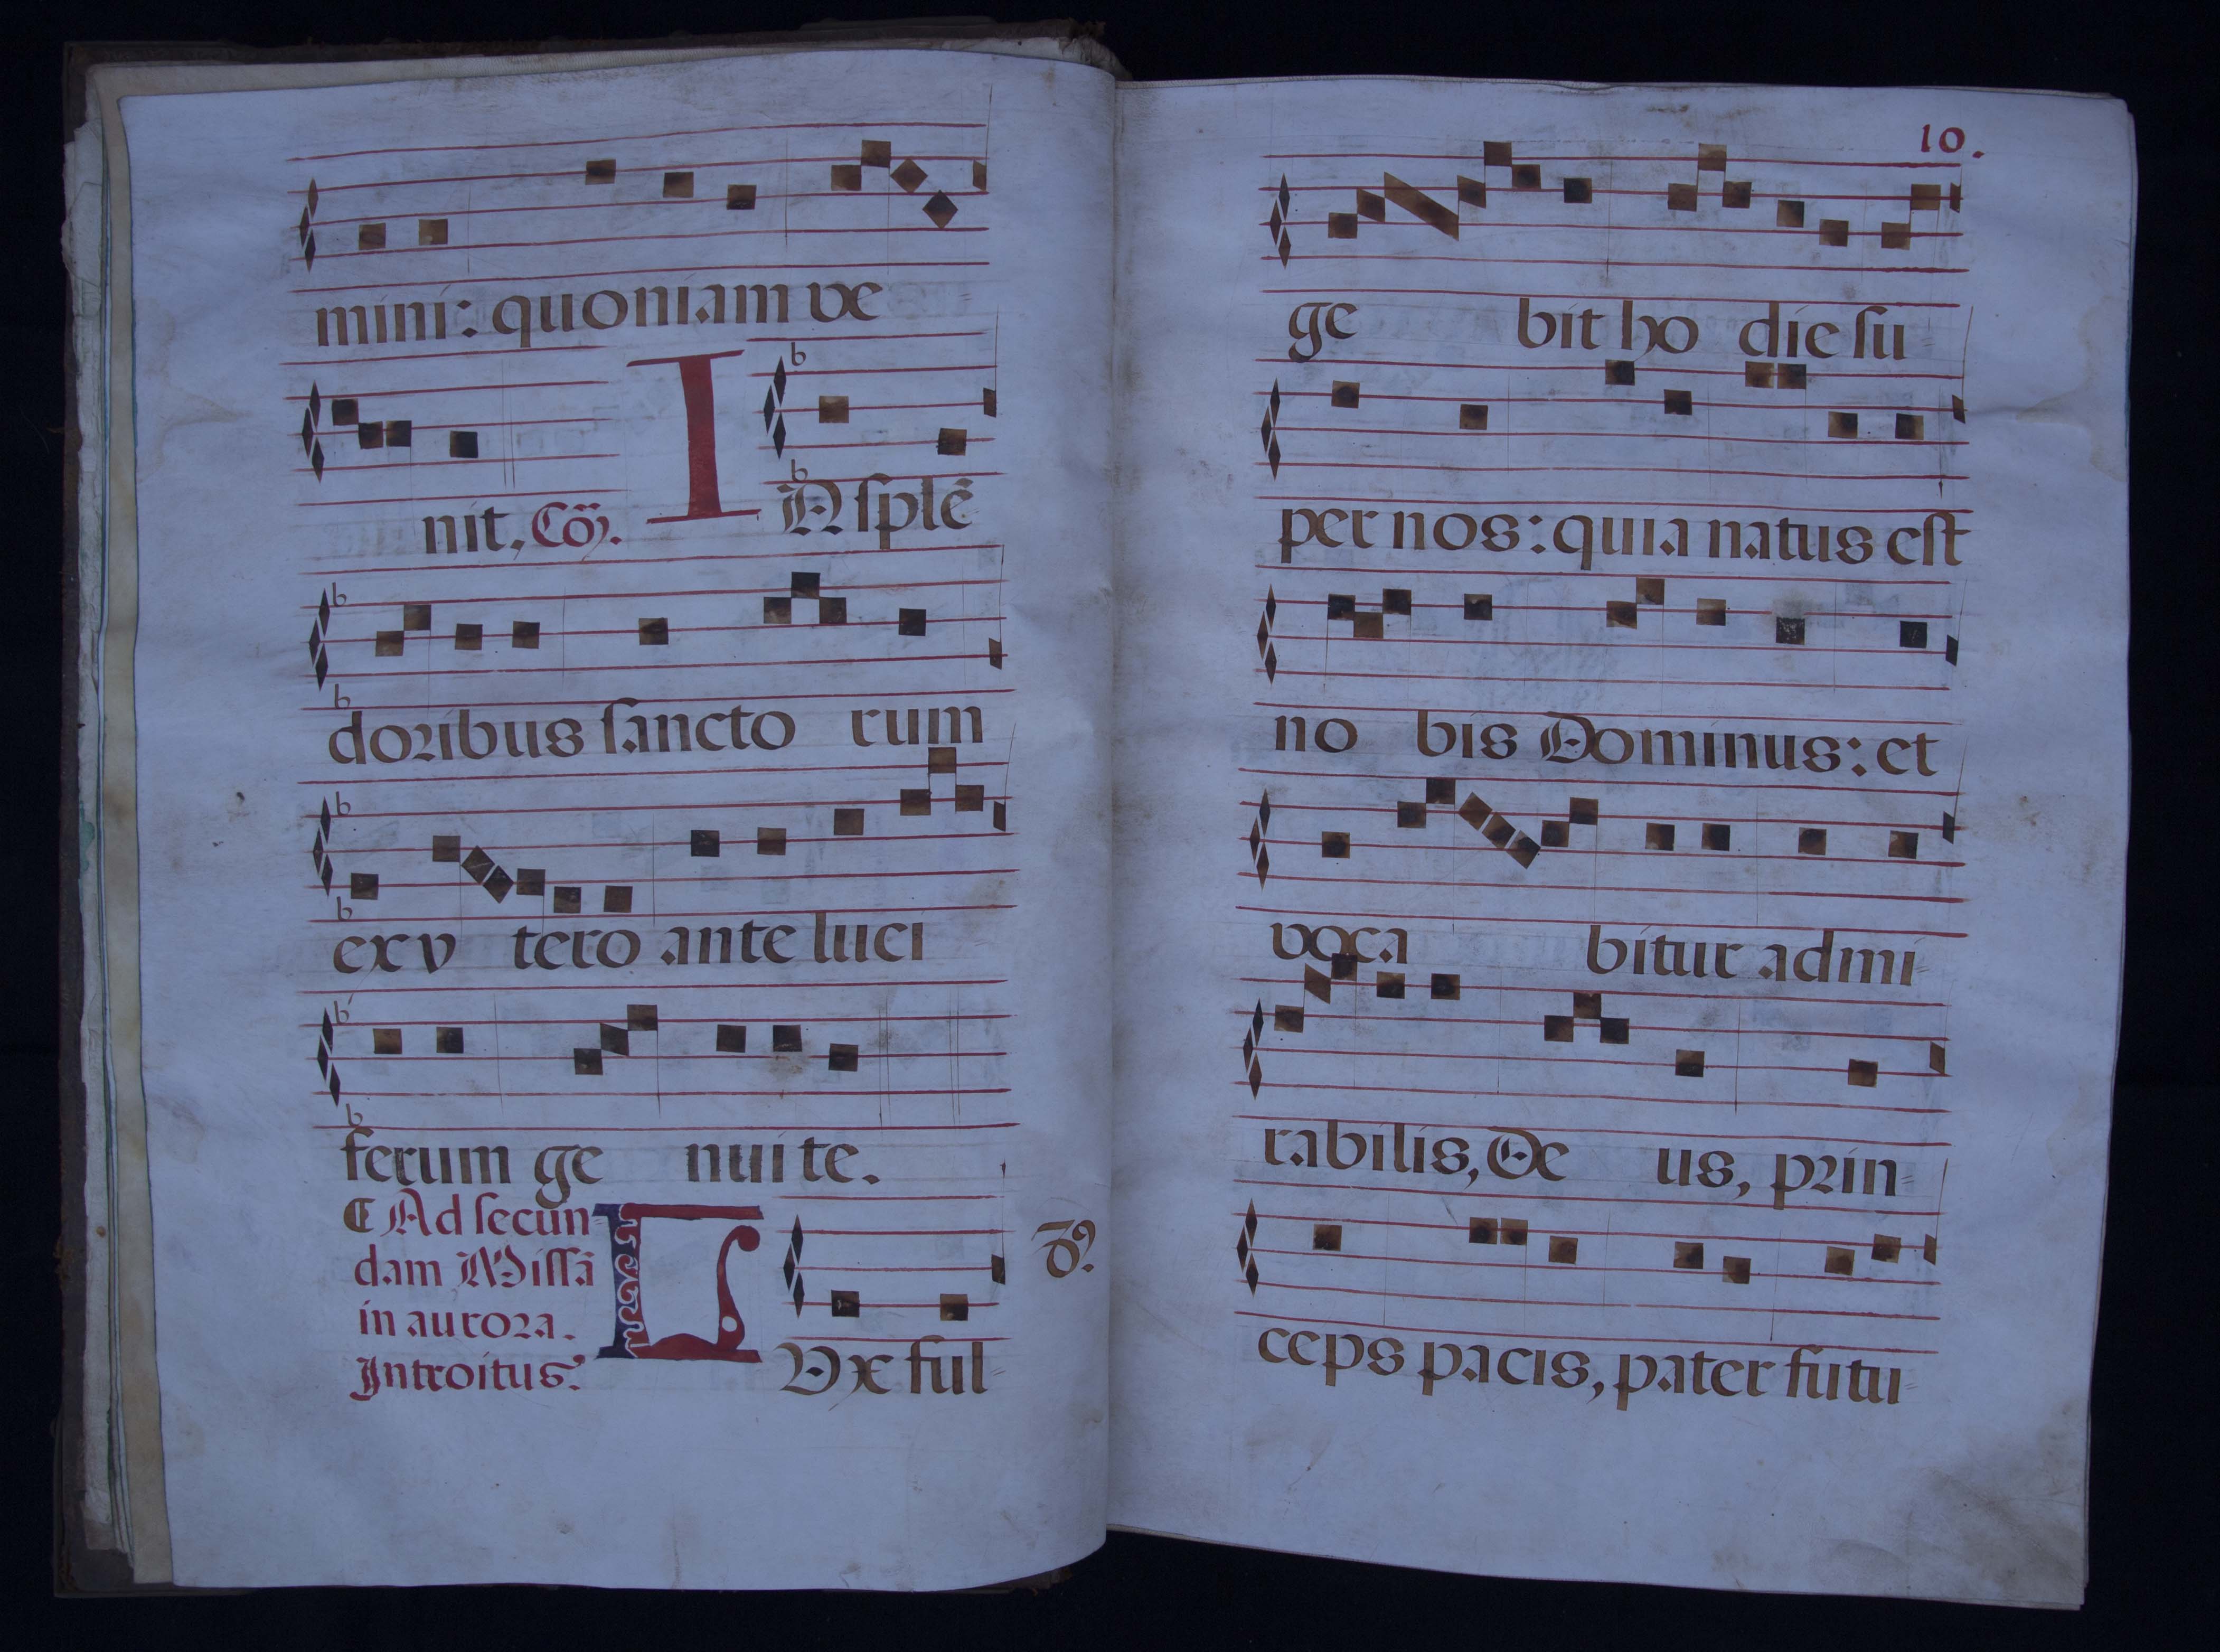 mini: quoniam ve
nit, Cõ.
IN splẽ
doribus sancto rum
ex v tero ante luci
ferum ge nui te.
Ad secun
dam Missã
in aurora.
Introitus.
LVx ful
8.
10.
ge bit ho die su
per nos: quia natus est
no bis Dominus: et
voca bitur admi
rabilis, De us, prin
ceps pacis, pater futu